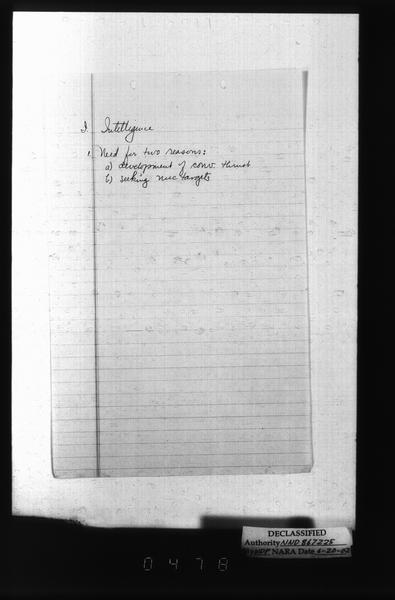 I. Intelligence
1. Need for two reasons:
a) development of conv. thrust
b) seeking nuc targets
DECLASSIFIED
Authority NND 867225
By WDP NARA Date 6-20-02
0478